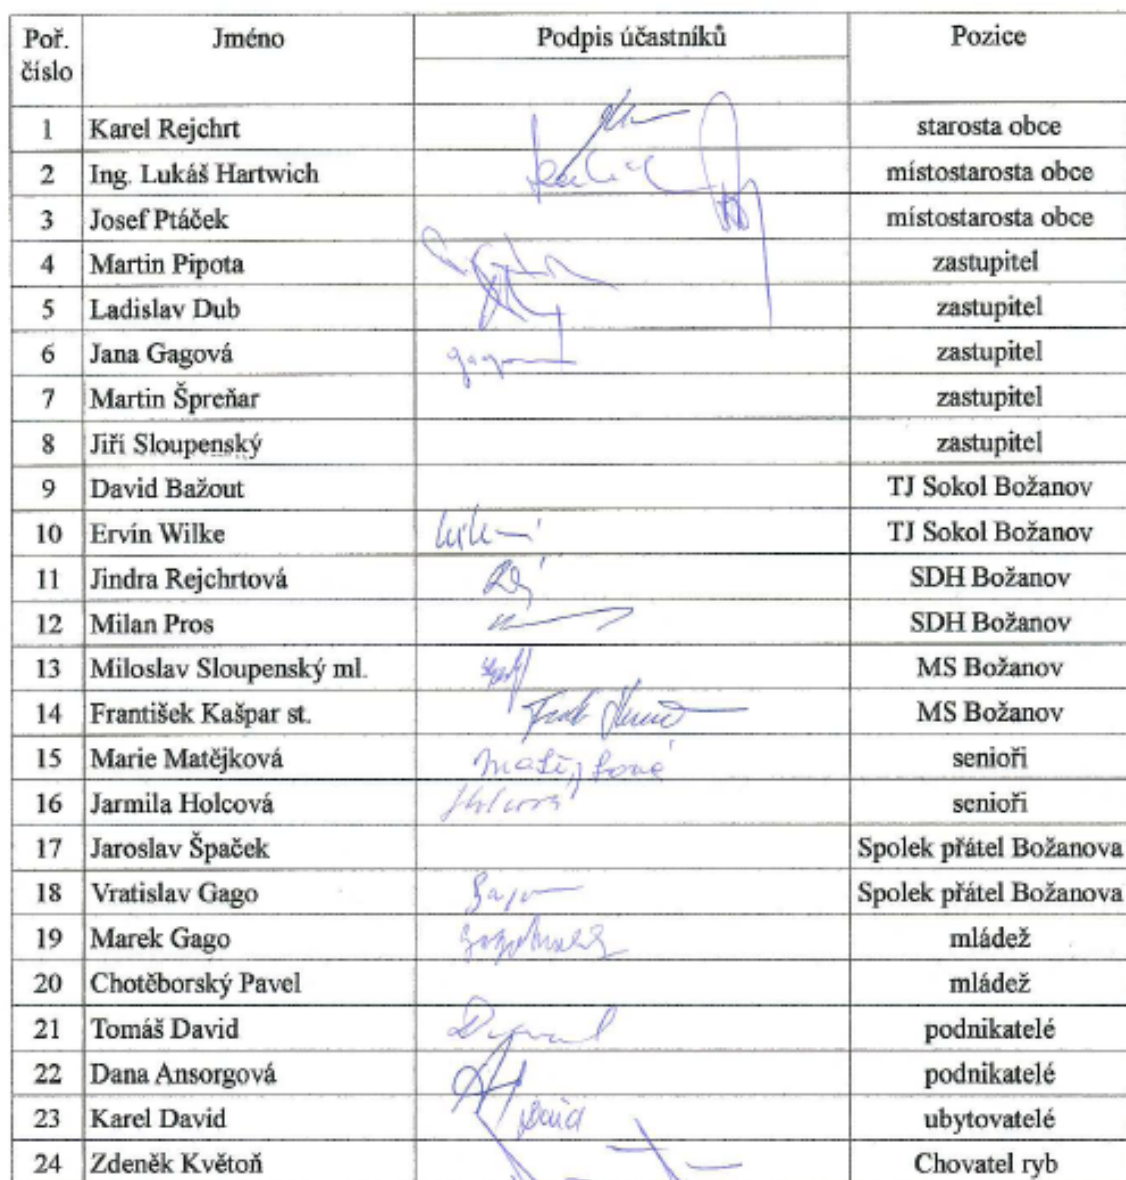 Poř. číslo Jméno Podpis účastníků Pozice
1 Karel Rejchrt starosta obce
2 Ing. Lukáš Hartwich místostarosta obce
3 Josef Ptáček místostarosta obce
4 Martin Pipota zastupitel
5 Ladislav Dub zastupitel
6 Jana Gagová zastupitel
7 Martin Špreňar zastupitel
8 Jiří Sloupenský zastupitel
9 David Bažout TJ Sokol Božanov
10 Ervín Wilke TJ Sokol Božanov
11 Jindra Rejchrtová SDH Božanov
12 Milan Pros SDH Božanov
13 Miloslav Sloupenský ml. MS Božanov
14 František Kašpar st. MS Božanov
15 Marie Matějková Matějková senioři
16 Jarmila Holcová Holcová senioři
17 Jaroslav Špaček Spolek přátel Božanova
18 Vratislav Gago Spolek přátel Božanova
19 Marek Gago mládež
20 Chotěborský Pavel mládež
21 Tomáš David podnikatelé
22 Dana Ansorgová podnikatelé
23 Karel David David ubytovatelé
24 Zdeněk Květoň Chovatel ryb